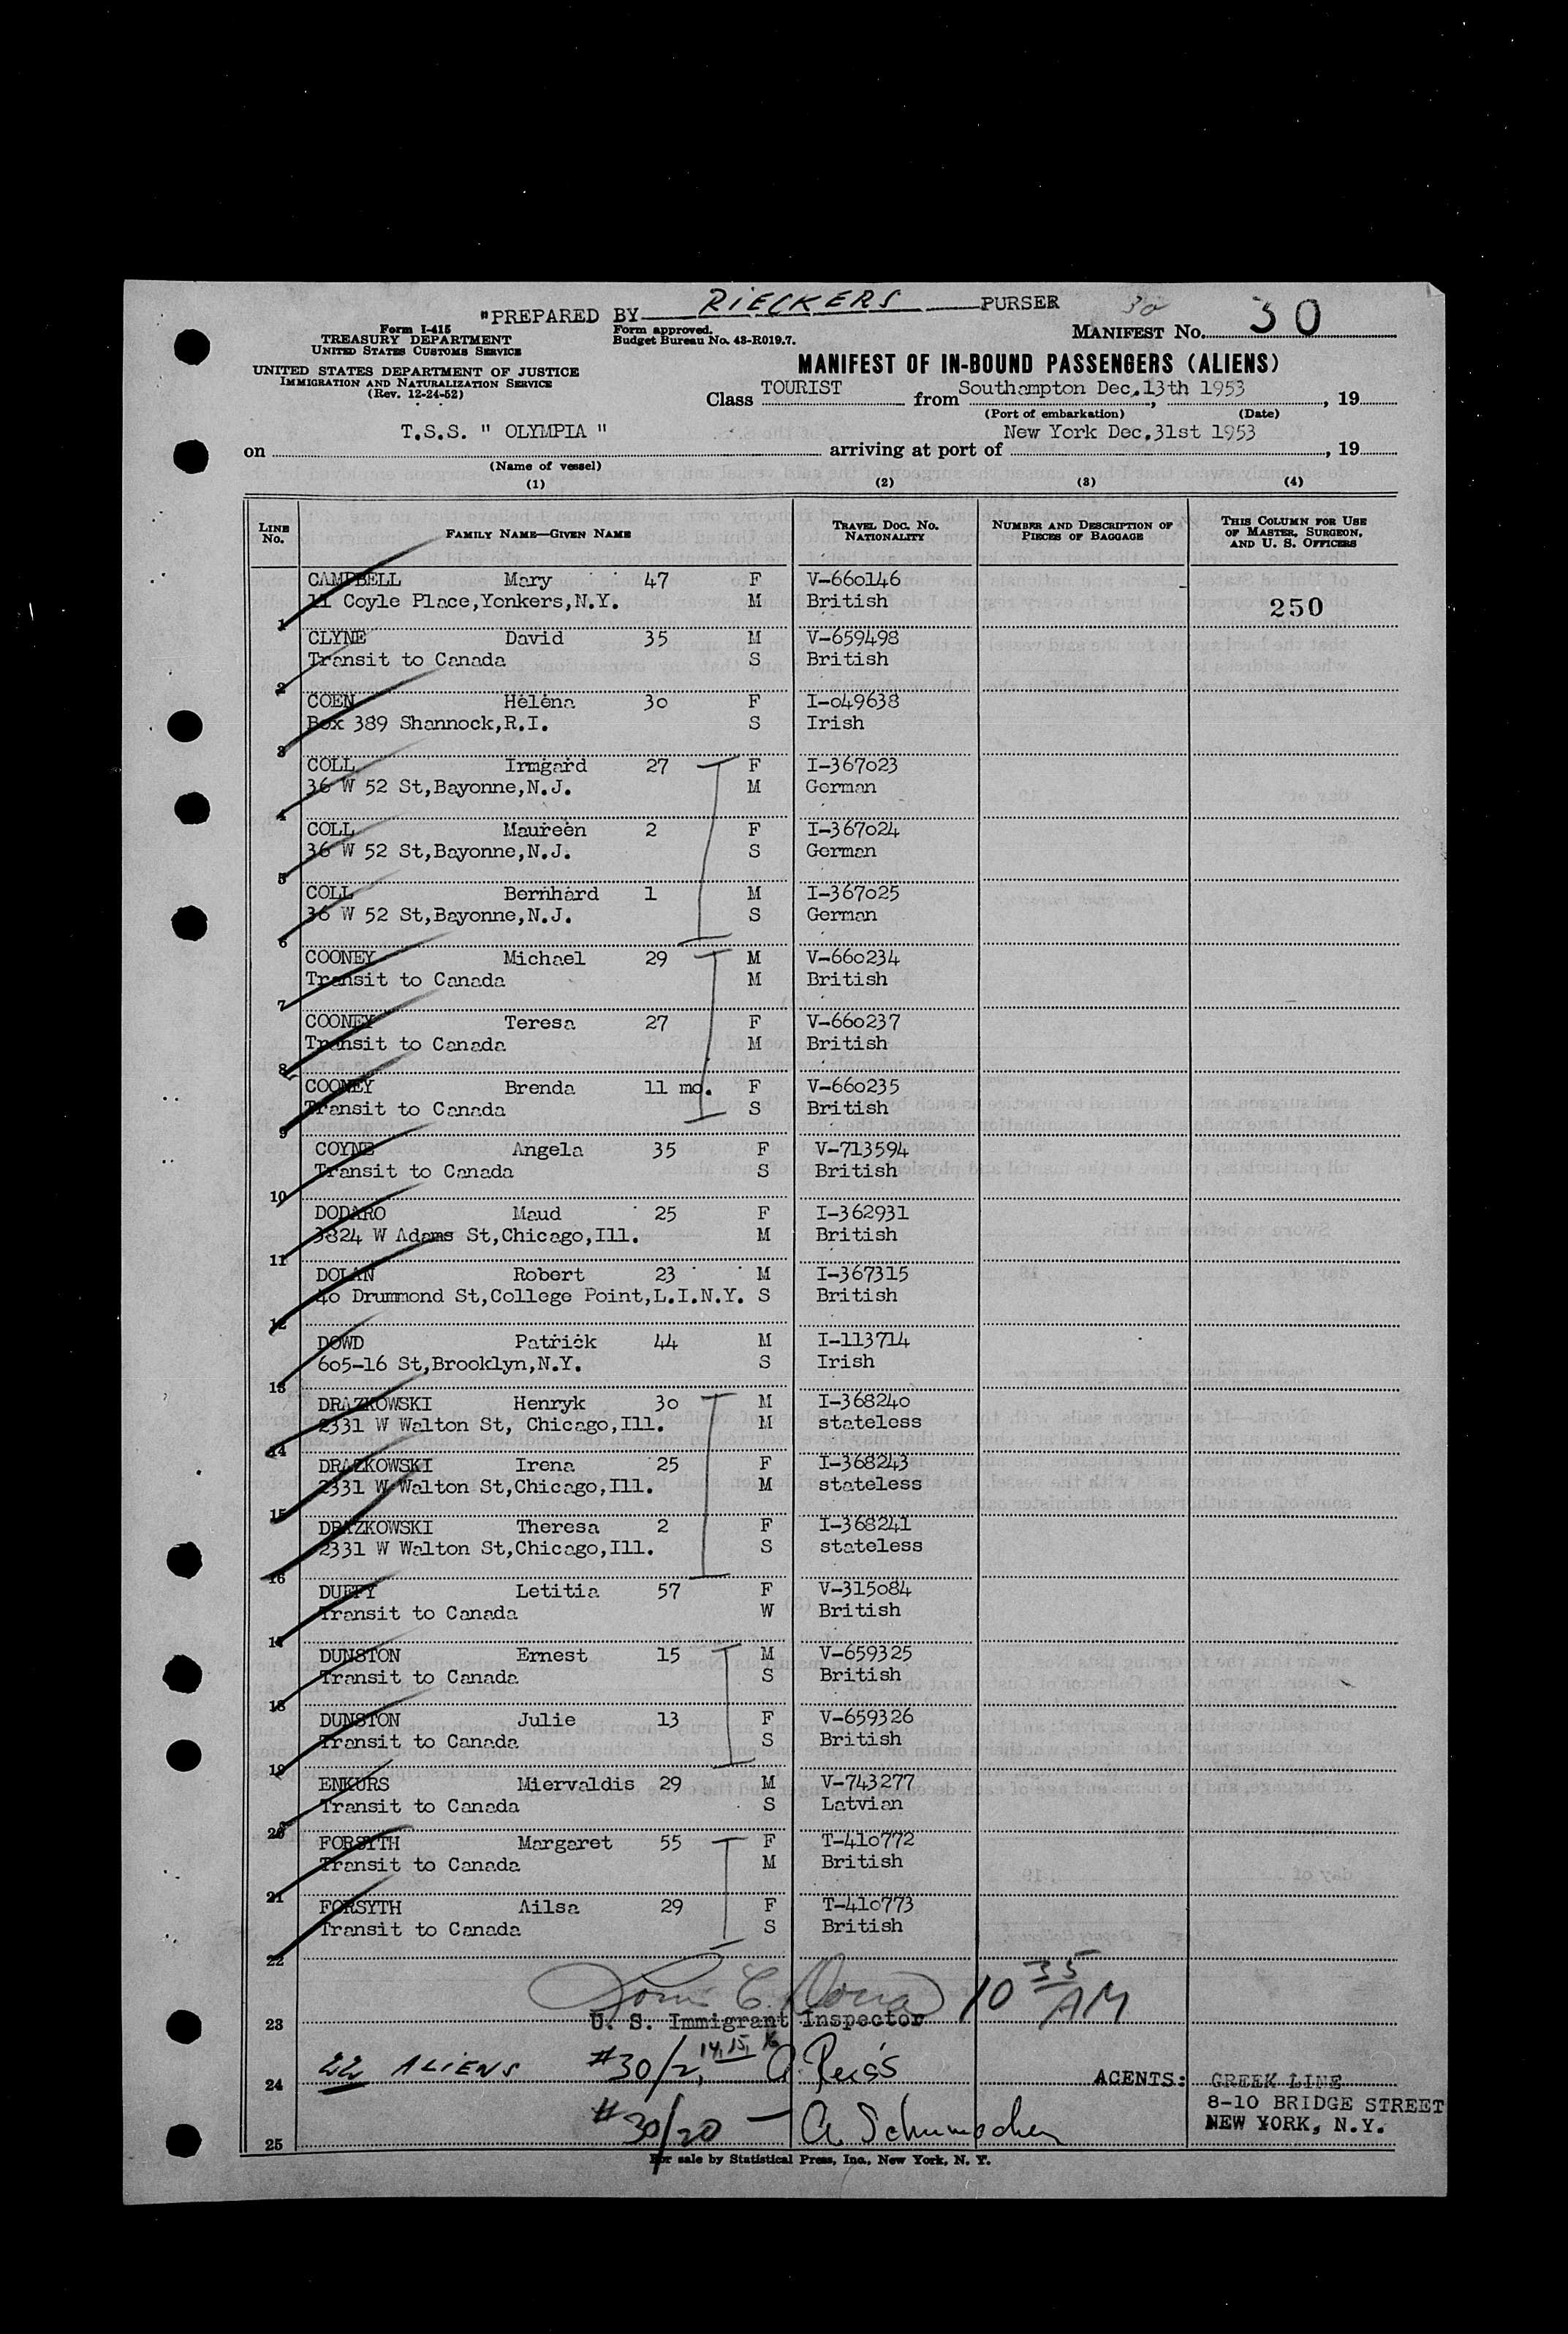 "PREPARED BY RIECKERS PURSER
30
Form I-415
TREASURY DEPARTMENT
UNITED STATES CUSTOMS SERVICE
Form approved.
Budget Bureau No. 43-R019.7.
MANIFEST No. 30
UNITED STATES DEPARTMENT OF JUSTICE
IMMIGRATION AND NATURALIZATION SERVICE
(Rev. 12-24-52)
MANIFEST OF IN-BOUND PASSENGERS (ALIENS)
Class TOURIST from Southampton Dec.13th 1953, 19
(Port of embarkation) (Date)
on T.S.S. " OLYMPIA " arriving at port of New York Dec.31st 1953, 19
(Name of vessel)
(1) (2) (3) (4)
LINE No. FAMILY NAME—GIVEN NAME TRAVEL DOC. NO. NATIONALITY NUMBER AND DESCRIPTION OF PIECES OF BAGGAGE THIS COLUMN FOR USE OF MASTER, SURGEON, AND U. S. OFFICERS
CAMPBELL Mary 47 F V-660146
11 Coyle Place,Yonkers,N.Y. M British 250
1
CLYNE David 35 M V-659498
Transit to Canada S British
2
COEN Helena 30 F I-049638
Box 389 Shannock,R.I. S Irish
3
COLL Irmgard 27 F I-367023
36 W 52 St,Bayonne,N.J. M German
4
COLL Maureen 2 F I-367024
36 W 52 St,Bayonne,N.J. S German
5
COLL Bernhard 1 M I-367025
36 W 52 St,Bayonne,N.J. S German
6
COONEY Michael 29 M V-660234
Transit to Canada M British
7
COONEY Teresa 27 F V-660237
Transit to Canada M British
8
COONEY Brenda 11 mo. F V-660235
Transit to Canada S British
9
COYNE Angela 35 F V-713594
Transit to Canada S British
10
DODARO Maud 25 F I-362931
3824 W Adams St,Chicago,Ill. M British
11
DOLAN Robert 23 M I-367315
40 Drummond St,College Point,L.I.N.Y. S British
12
DOWD Patrick 44 M I-113714
605-16 St,Brooklyn,N.Y. S Irish
13
DRAZKOWSKI Henryk 30 M I-368240
2331 W Walton St, Chicago,Ill. M stateless
14
DRAZKOWSKI Irena 25 F I-368243
2331 W Walton St,Chicago,Ill. M stateless
15
DRAZKOWSKI Theresa 2 F I-368241
2331 W Walton St,Chicago,Ill. S stateless
16
DUFFY Letitia 57 F V-315084
Transit to Canada W British
17
DUNSTON Ernest 15 M V-659325
Transit to Canada S British
18
DUNSTON Julie 13 F V-659326
Transit to Canada S British
19
ENKURS Miervaldis 29 M V-743277
Transit to Canada S Latvian
20
FORSYTH Margaret 55 F T-410772
Transit to Canada M British
21
FORSYTH Ailsa 29 F T-410773
Transit to Canada S British
22
10 35 AM
23 U. S. Immigrant Inspector
22 ALIENS #30/2, 14, 15, 16
24 AGENTS: GREEK LINE
8-10 BRIDGE STREET
#30/20 — A Schumacher NEW YORK, N.Y.
25
For sale by Statistical Press, Inc., New York, N. Y.